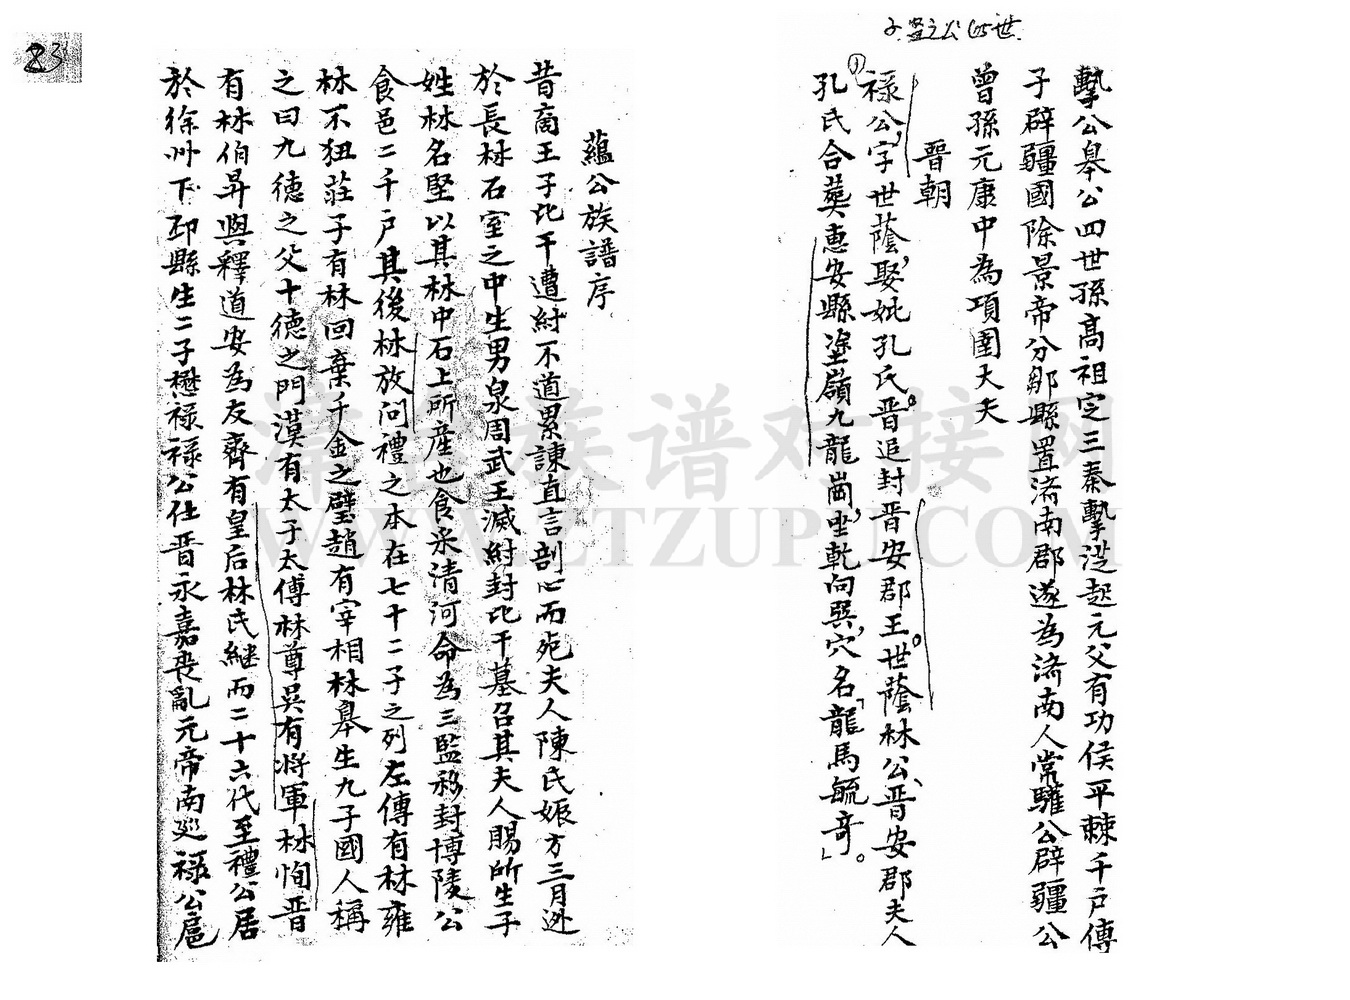 摯公皋公四世孫高祖定三秦摯從起元父有功侯平棘千戶傳
子辟疆國除景帝分鄒縣置済南郡遂為済南人常驩公辟疆公
曾孫元康中為項圉大夫
晋朝
禄公,字世蔭,娶妣孔氏。晋追封晋安郡王。世蔭林公、晋安郡夫人
孔氏合葬惠安縣塗嶺九龍崗,坐乾向巽,穴名「龍馬毓竒」。
蘊公族譜序
昔商王子比干遭紂不道累諫直言剖心而死夫人陳氏娠方三月逊
於長林石室之中生男泉周武王滅紂封比干墓召其夫人賜所生子
姓林名堅以其林中石上所産也食采清河命為三監移封博陵公
食邑二千戶其後林放问禮之本在七十二子之列左傳有林雍
林不狃莊子有林回棄千金之璧趙有宰相林皋生九子國人稱
之曰九德之父十德之門漢有太子太傅林尊吴有将軍林恂晋
有林伯昇與釋道安為友齊有皇后林氏継而二十六代至禮公居
於徐州下邳縣生二子懋禄禄公仕晋永嘉丧亂元帝南廵禄公扈
23
清台族谱对接网
WWW.ZTZUPU.COM